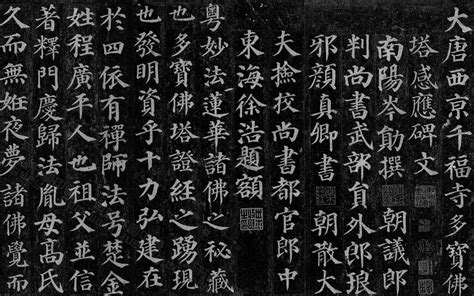 大唐西京千福寺多寶佛
塔感應碑文
南陽岑勛撰 朝議郎
判尚書武部員外郎琅
邪顏真卿書 朝散大
夫撿校尚書都官郎中
東海徐浩題額
粵妙法蓮華諸佛之秘藏
也多寶佛塔證經之踴現
也發明資乎十力弘建在
於四依有禪師法号楚金
姓程廣平人也祖父並信
著釋門慶歸法胤母高氏
久而無姙夜夢諸佛覺而